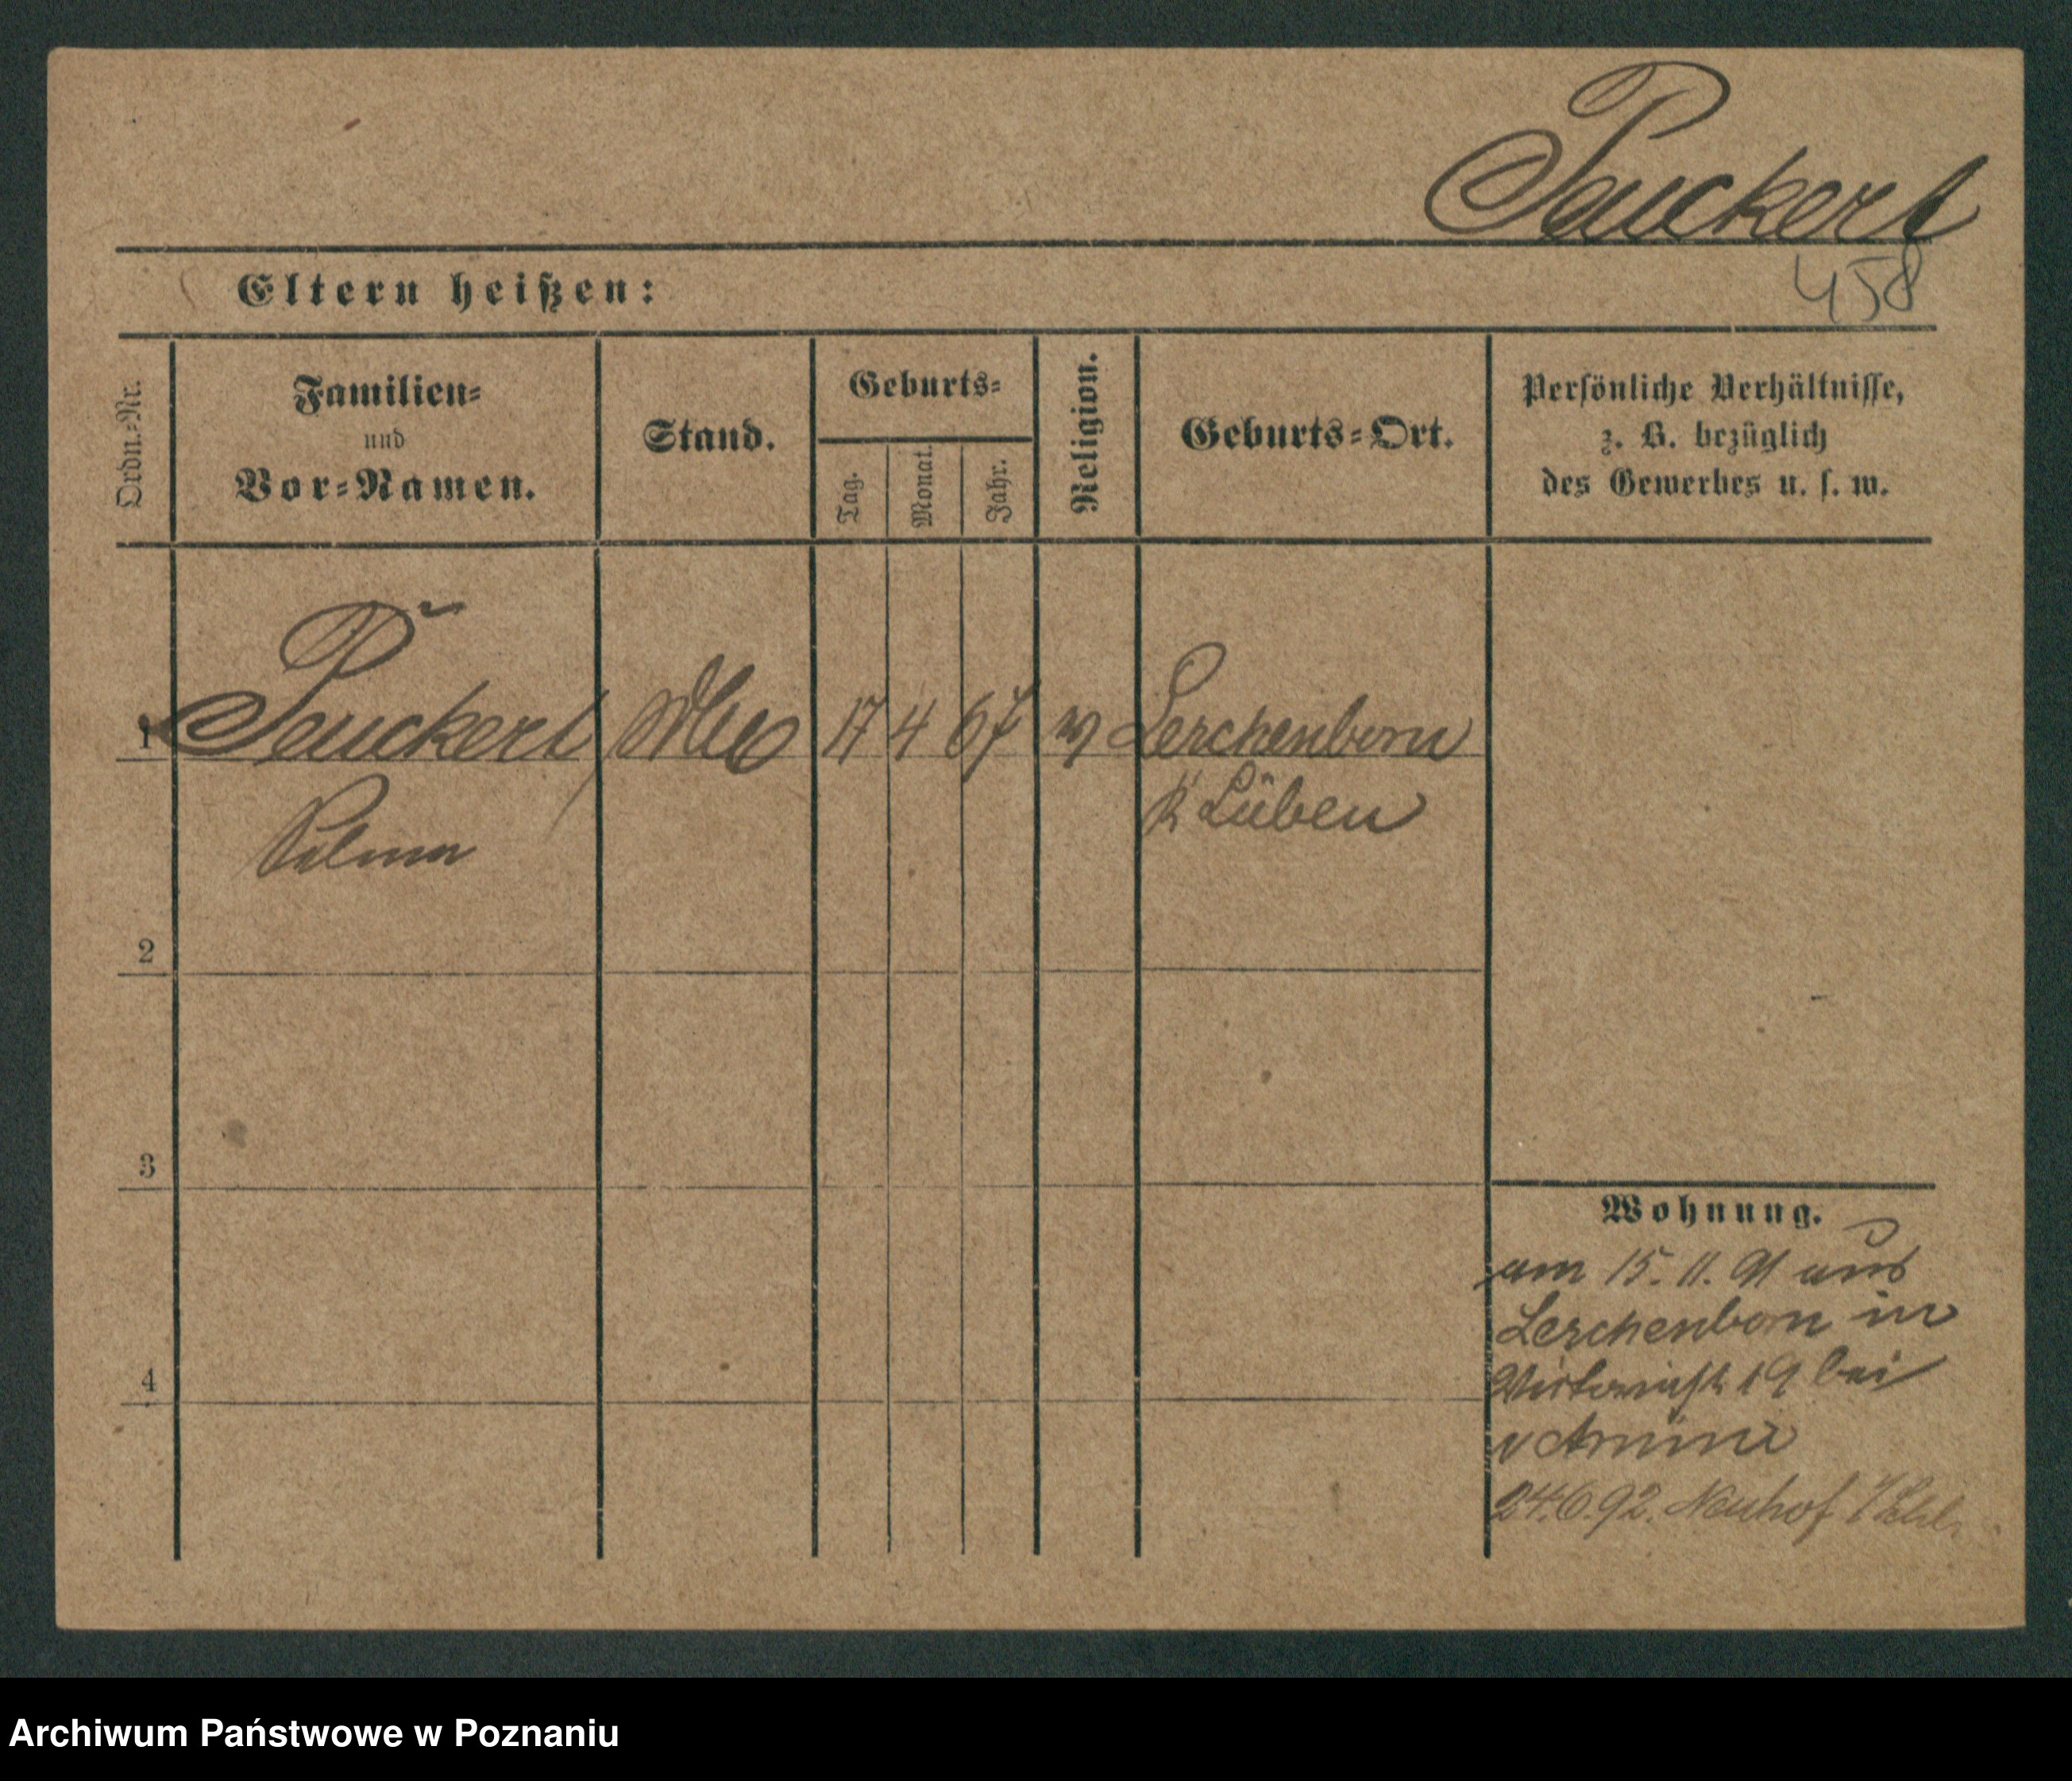 Peuckert
458
Eltern heißen:
Ordn.-Nr.
Familien-
und
Vor-Namen.
Stand.
Geburts-
Tag.
Monat.
Jahr.
Religion.
Geburts-Ort.
Persönliche Verhältnisse,
z. B. bezüglich
des Gewerbes u. s. w.
1 Peuckert 17 4 67 Lerchenborn
Selma K Lüben
2
3
4
Wohnung.
am 15. 11. 91 aus
Lerchenborn in
19 bei
v
24.6.92. Neuhof
Archiwum Państwowe w Poznaniu